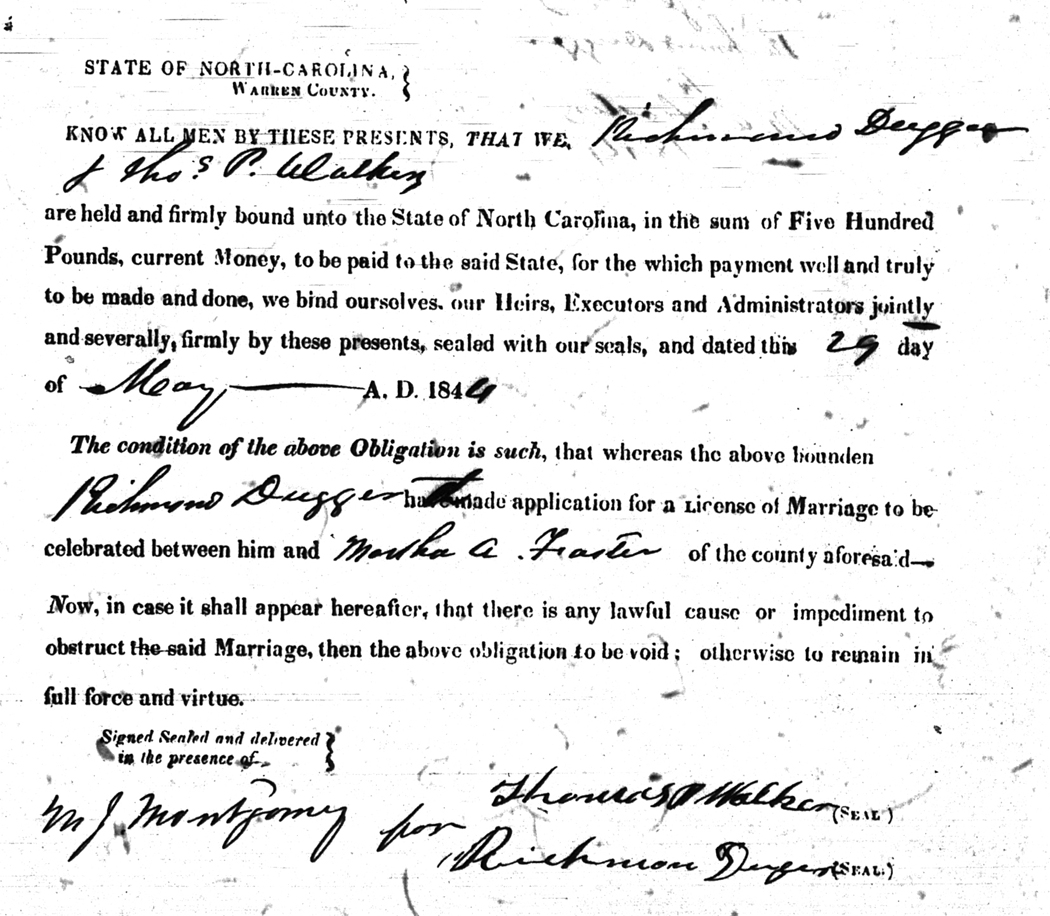 STATE OF NORTH-CAROLINA,
WARREN COUNTY.
KNOW ALL MEN BY THESE PRESENTS, THAT WE, Richmond Dugger
& Thos. P. Walker
are held and firmly bound unto the State of North Carolina, in the sum of Five Hundred
Pounds, current Money, to be paid to the said State, for the which payment well and truly
to be made and done, we bind ourselves, our Heirs, Executors and Administrators jointly
and severally, firmly by these presents, sealed with our seals, and dated this 29 day
of May A. D. 1844
The condition of the above Obligation is such, that whereas the above bounden
Richmond Dugger made application for a License of Marriage to be
celebrated between him and Martha A. of the county aforesa'd
Now, in case it shall appear hereafter, that there is any lawful cause or impediment to
obstruct the said Marriage, then the above obligation to be void; otherwise to remain in
full force and virtue.
Signed Sealed and delivered
in the presence of
M J Montgomey
Thomas P Walker (SEAL)
for Richmon Duger (SEAL.)